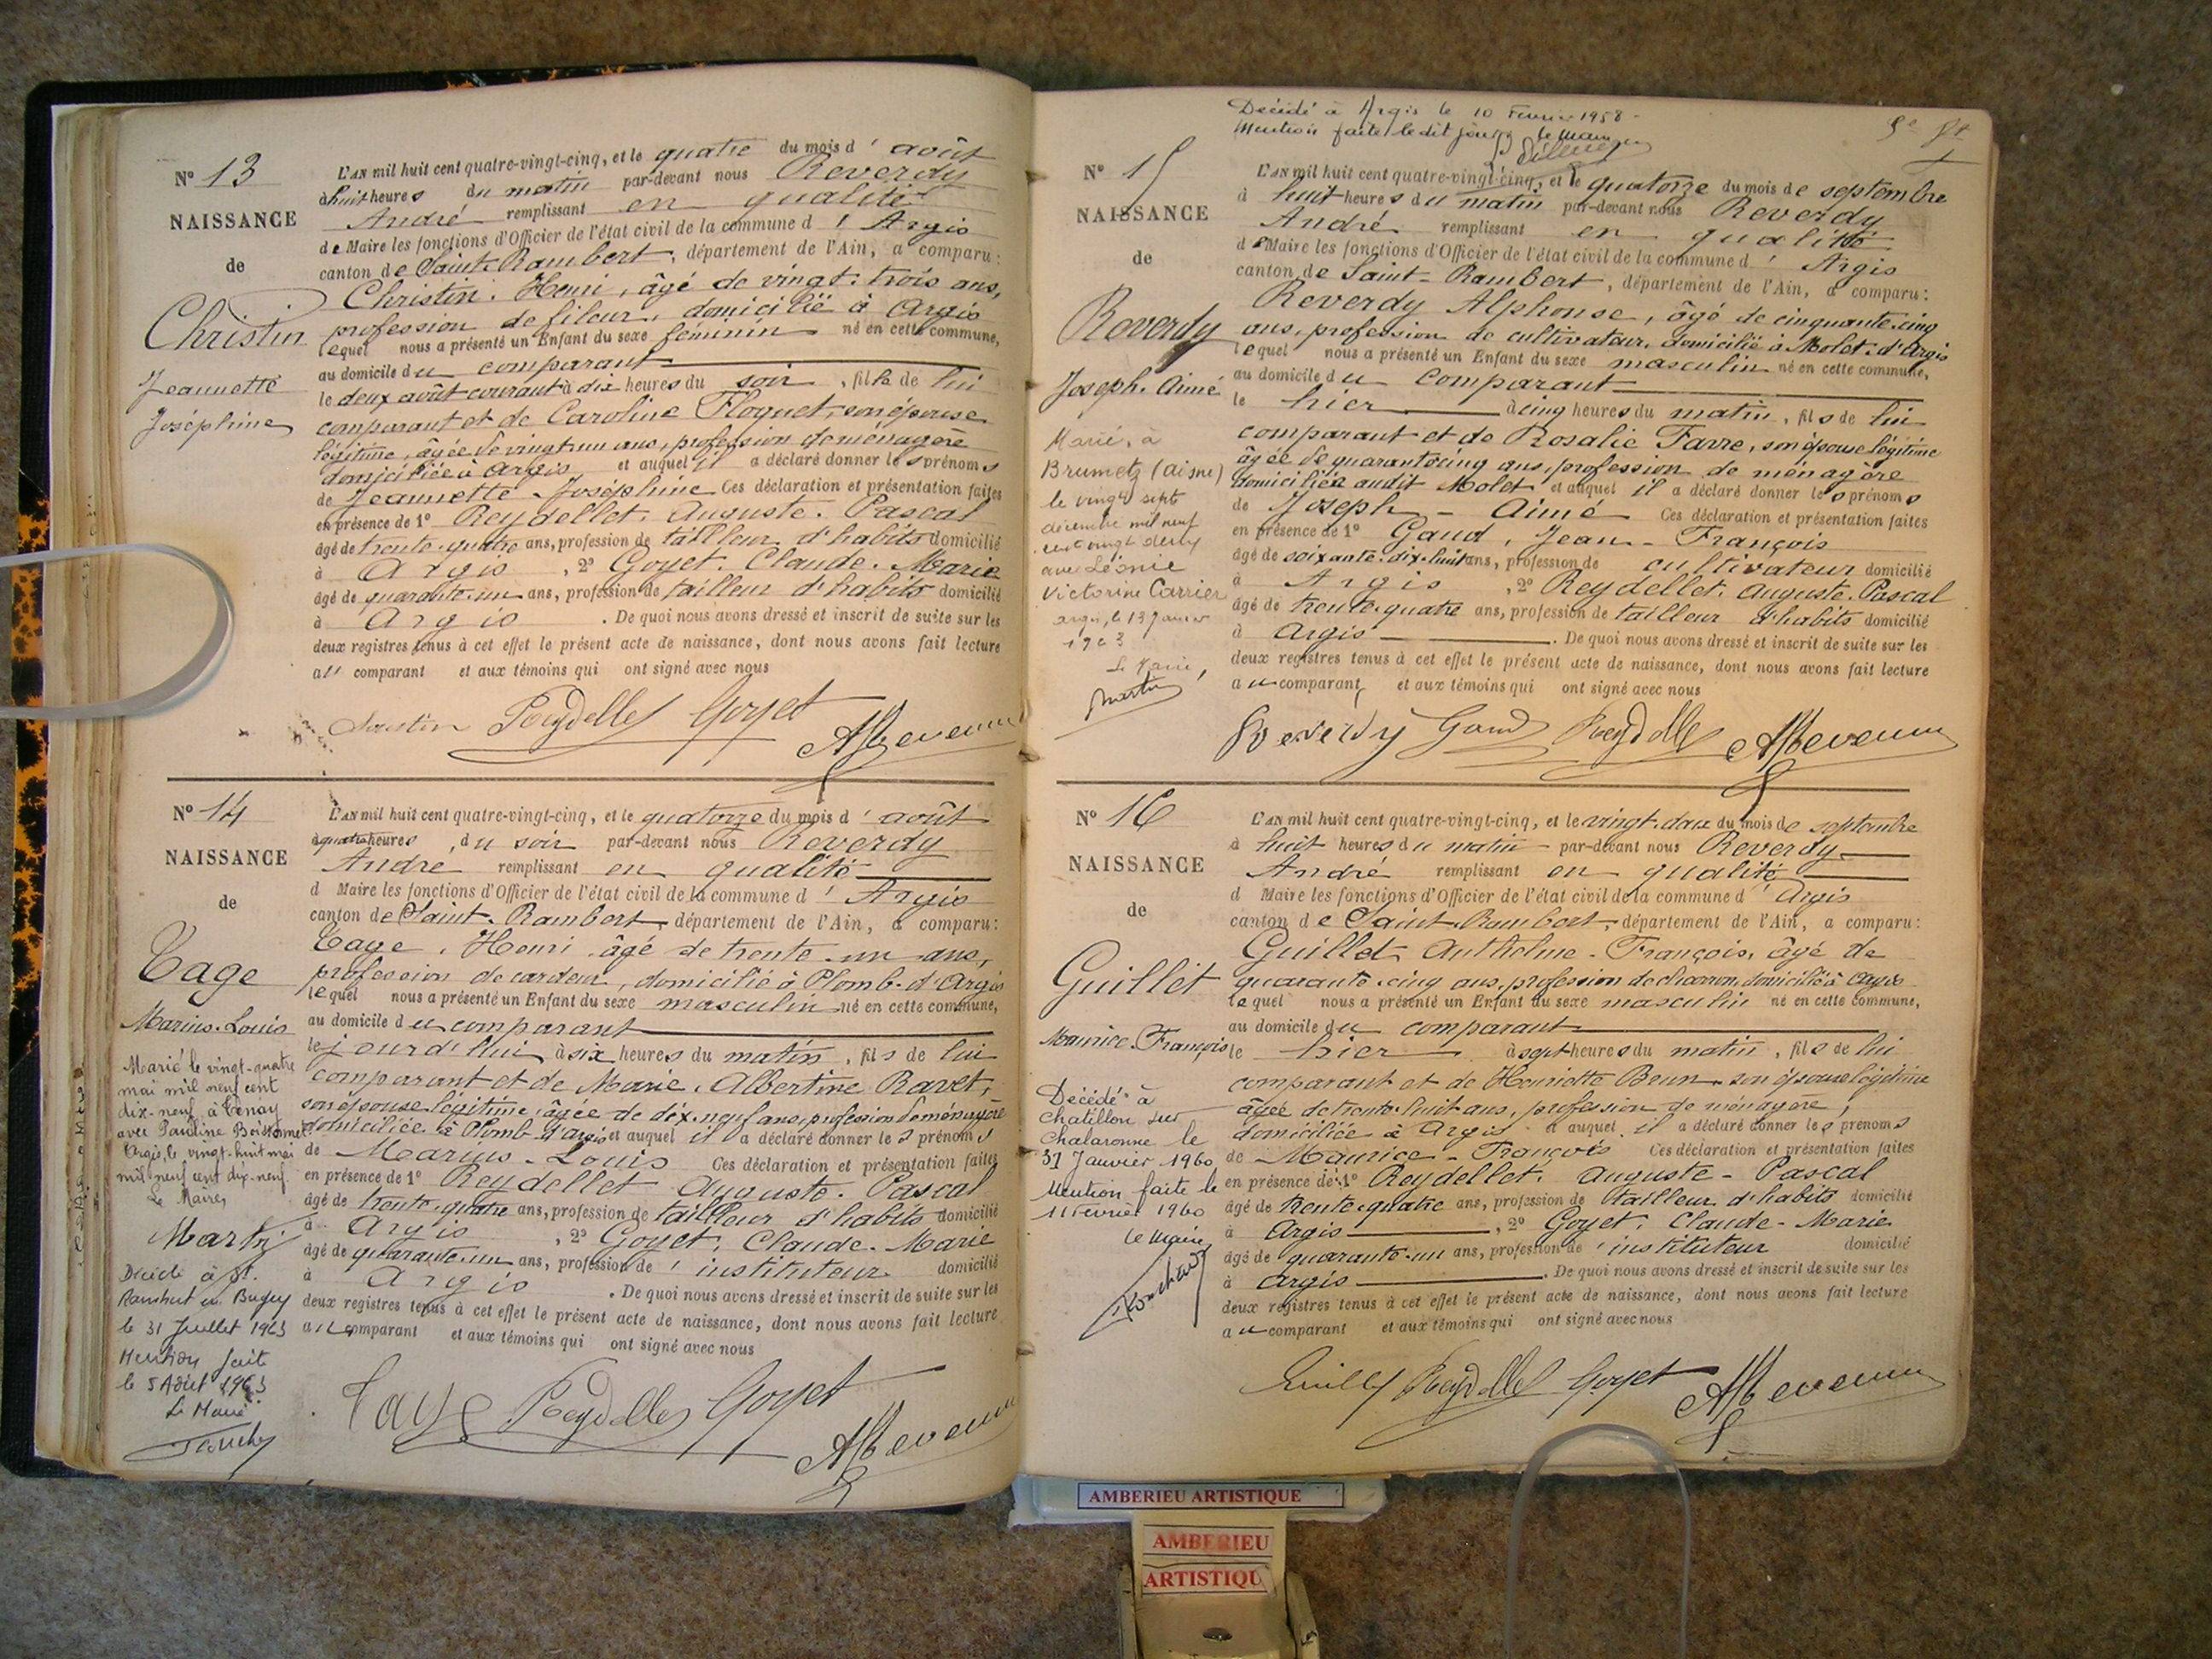 N° 13
NAISSANCE
de
Christin
Jeannette
Joséphine
L'AN mil huit cent quatre-vingt-cinq, et le quatre du mois d' août
à huit heures du matin par-devant nous Reverdy
André remplissant en qualité
de Maire les fonctions d'Officier de l'état civil de la commune d' Argis
canton de Saint-Rambert, département de l'Ain, a comparu:
Christin. Henri, âgé de vingt-trois ans,
profession de fileur, domicilié à Argis
lequel nous a présenté un Enfant du sexe féminin né en cette commune,
au domicile du comparant
le deux août courant à dix heures du soir, fille de lui
comparant et de Caroline Floquet, son épouse
légitime, âgée de vingt un ans, profession de ménagère
domiciliée à Argis et auquel il a déclaré donner les prénoms
de Jeannette-Joséphine Ces déclaration et présentation faites
en présence de 1° Reydellet. Auguste. Pascal
âgé de trente-quatre ans, profession de tailleur d'habits domicilié
à Argis, 2° Goyet. Claude. Marie
âgé de quarante-un ans, profession de tailleur d'habits domicilié
à Argis. De quoi nous avons dressé et inscrit de suite sur les
deux registres tenus à cet effet le présent acte de naissance, dont nous avons fait lecture
au comparant et aux témoins qui ont signé avec nous
Reydellet Goyet
N° 14
NAISSANCE
de
Tage
Marius-Louis
Marié le vingt-quatre
mai mil neuf cent
dix-neuf à Tenay
avec Pauline
Argis, le vingt-huit mai
mil neuf cent dix-neuf.
Le Maire,
Martin
Décédé à St.
Rambert en Bugey
le 31 Juillet 1963
Mention faite
le 5 Août 1963
Le Maire
L'AN mil huit cent quatre-vingt-cinq, et le quatorze du mois d' août
à quatre heures, du soir par-devant nous Reverdy
André remplissant en qualité
d Maire les fonctions d'Officier de l'état civil de la commune d' Argis
canton de Saint-Rambert, département de l'Ain, a comparu:
Tage, Henri âgé de trente-un ans,
profession de cardeur, domicilié à Plomb-d'Argis
lequel nous a présenté un Enfant du sexe masculin né en cette commune,
au domicile du comparant
le jourd'hui à six heures du matin, fils de lui
comparant et de Marie. Albertine Ravet,
son épouse légitime, âgée de dix-neuf ans, profession de ménagère
domiciliée à Plomb-d'Argis et auquel il a déclaré donner les prénoms
de Marius-Louis Ces déclaration et présentation faites
en présence de 1° Reydellet Auguste. Pascal
âgé de trente-quatre ans, profession de tailleur d'habits domicilié
à Argis, 2° Goyet. Claude. Marie
âgé de quarante-un ans, profession de d'instituteur domicilié
à Argis. De quoi nous avons dressé et inscrit de suite sur les
deux registres tenus à cet effet le présent acte de naissance, dont nous avons fait lecture
au comparant et aux témoins qui ont signé avec nous
Reydellet Goyet
Décédé à Argis le 10 Février 1958.
Mention faite le dit jour le Maire
N° 15
NAISSANCE
de
Reverdy
Joseph. Aimé
Marié, à
Brumetz (Aisne)
le vingt sept
décembre mil neuf
cent vingt deux
avec Léonie
Victorine Carrier
Argis, le 13 Janvier
1923
Le Maire,
Martin
L'AN mil huit cent quatre-vingt-cinq, et le quatorze du mois de septembre
à huit heures du matin par-devant nous Reverdy
André remplissant en qualité
de Maire les fonctions d'Officier de l'état civil de la commune d' Argis
canton de Saint-Rambert, département de l'Ain, a comparu:
Reverdy Alphonse, âgé de cinquante-cinq
ans, profession de cultivateur, domicilié à Molet-d'Argis
lequel nous a présenté un Enfant du sexe masculin né en cette commune,
au domicile du comparant
le hier à cinq heures du matin, fils de lui
comparant et de Rosalie Favre, son épouse légitime
âgée de quarante-cinq ans, profession de ménagère
domiciliée audit Molet et auquel il a déclaré donner les prénoms
de Joseph-Aimé Ces déclaration et présentation faites
en présence de 1° Gaud, Jean-François
âgé de soixante-dix-huit ans, profession de cultivateur domicilié
à Argis, 2° Reydellet. Auguste. Pascal
âgé de trente-quatre ans, profession de tailleur d'habits domicilié
à Argis. De quoi nous avons dressé et inscrit de suite sur les
deux registres tenus à cet effet le présent acte de naissance, dont nous avons fait lecture
au comparant, et aux témoins qui ont signé avec nous
Reverdy Gaud Reydellet
N° 16
NAISSANCE
de
Guillet
Maurice. François
Décédé à
Chatillon sur
Chalaronne le
31 Janvier 1960
Mention faite le
11 Février 1960
le Maire
L'AN mil huit cent quatre-vingt-cinq, et le vingt-deux du mois de septembre
à huit heures du matin par-devant nous Reverdy
André remplissant en qualité
d Maire les fonctions d'Officier de l'état civil de la commune d' Argis
canton de Saint-Rambert, département de l'Ain, a comparu:
Guillet Anthelme-François, âgé de
quarante-cinq ans, profession de charron, domicilié à Argis
lequel nous a présenté un Enfant du sexe masculin né en cette commune,
au domicile du comparant
le hier à sept heures du matin, fils de lui
comparant et de Henriette Brun, son épouse légitime
âgée de trente-huit ans, profession de ménagère,
domiciliée à Argis et auquel il a déclaré donner les prénoms
de Maurice-François Ces déclaration et présentation faites
en présence de 1° Reydellet. Auguste-Pascal
âgé de trente-quatre ans, profession de tailleur d'habits domicilié
à Argis, 2° Goyet. Claude-Marie
âgé de quarante-un ans, profession de d'instituteur domicilié
à Argis. De quoi nous avons dressé et inscrit de suite sur les
deux registres tenus à cet effet le présent acte de naissance, dont nous avons fait lecture
au comparant et aux témoins qui ont signé avec nous
Reydellet Goyet
AMBERIEU ARTISTIQUE
AMBERIEU
ARTISTIQU